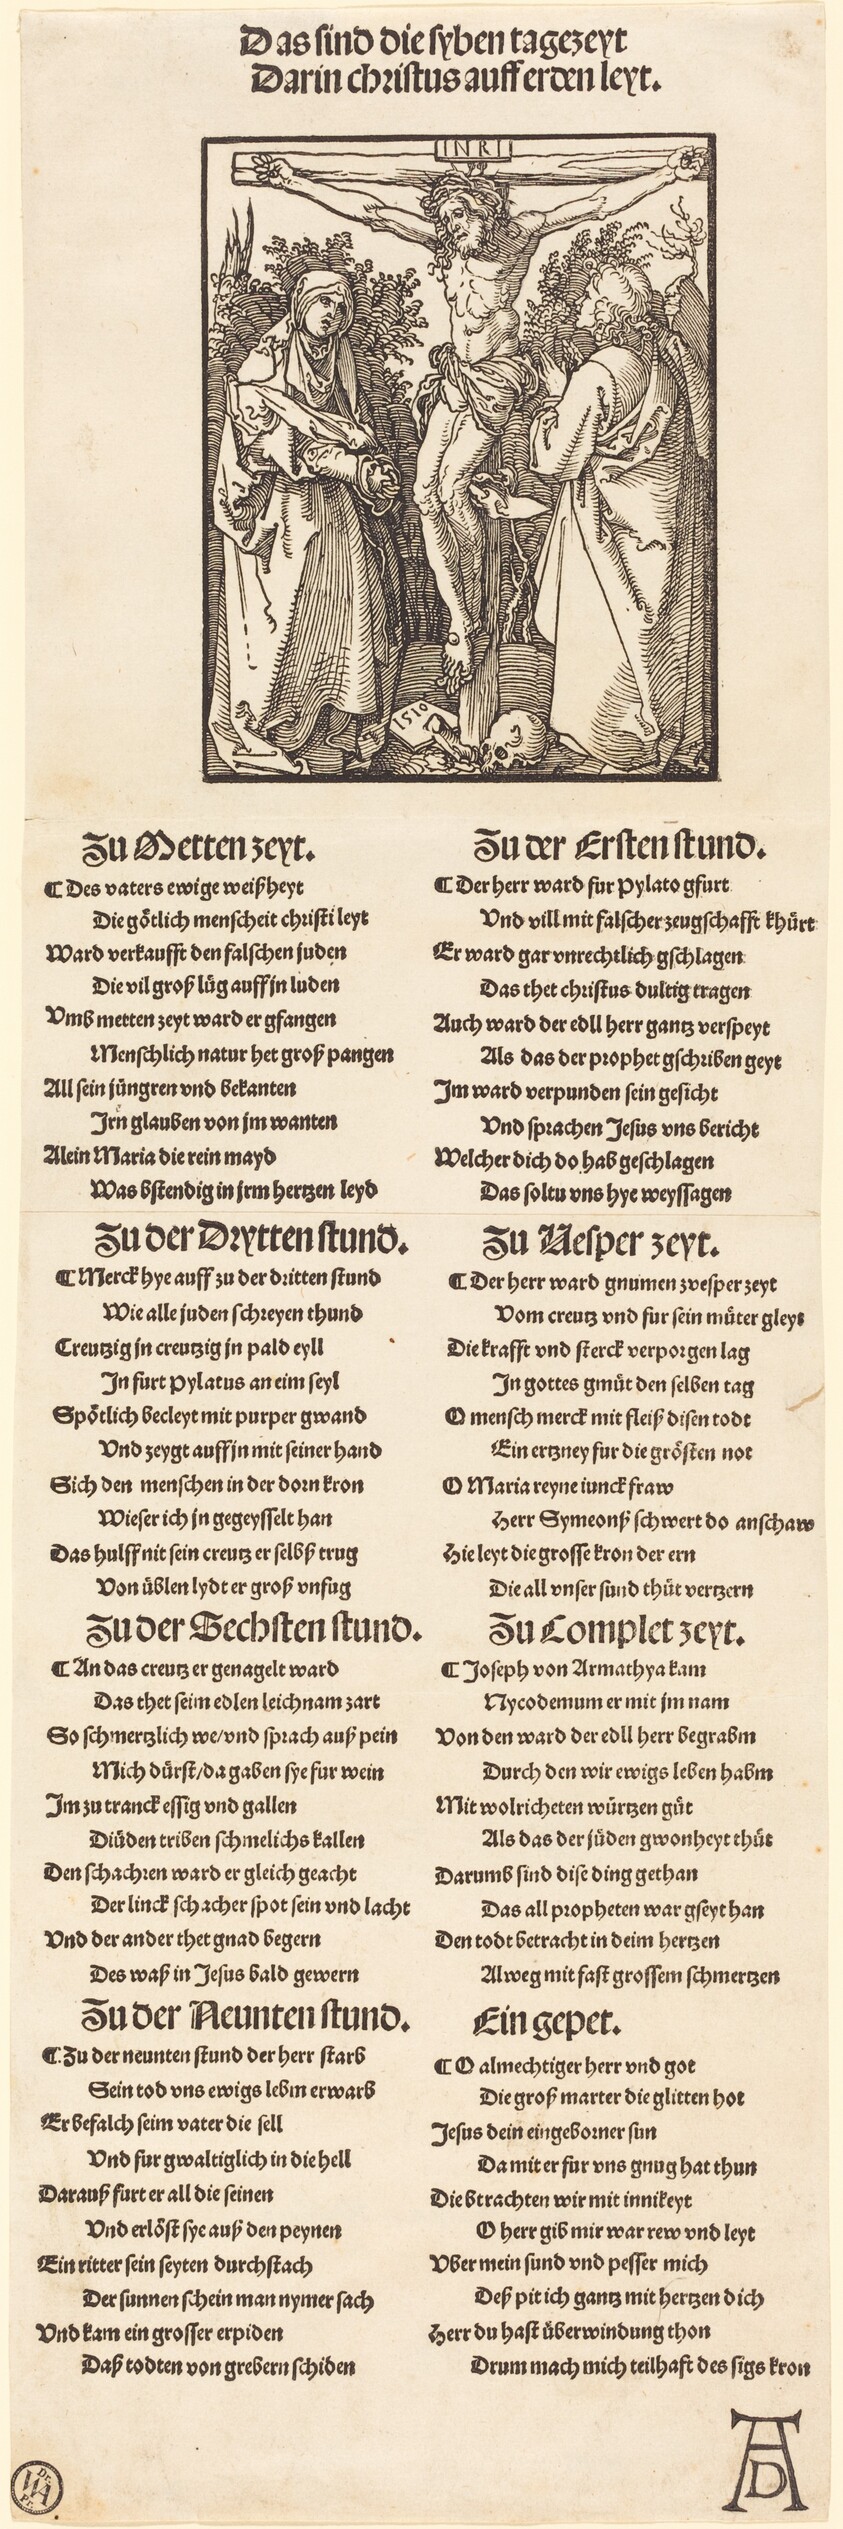 Das sind die syben tagezeyt
Darin christus auff erden leyt.
INRI
1510
Zu Metten zeyt.
¶ Des vaters ewige weißheyt
Die götlich menscheit christi leyt
Ward verkaufft den falschen juden
Die vil groß lüg auff jn luden
Vmb metten zeyt ward er gfangen
Menschlich natur het groß pangen
All sein jüngren vnd bekanten
Jrn glauben von jm wanten
Alein Maria die rein mayd
Was bstendig in jrm hertzen leyd
Zu der Ersten stund.
¶ Der herr ward fur Pylato gfurt
Vnd vill mit falscher zeugschafft khürt
Er ward gar vnrechtlich gschlagen
Das thet christus dultig tragen
Auch ward der edll herr gantz verspeyt
Als das der prophet gschriben geyt
Jm ward verpunden sein gesicht
Vnd sprachen Jesus vns bericht
Welcher dich do hab geschlagen
Das soltu vns hye weyssagen
Zu der Drytten stund.
¶ Merck hye auff zu der dritten stund
Wie alle juden schreyen thund
Creutzig jn creutzig jn pald eyll
Jn furt Pylatus an eim seyl
Spötlich becleyt mit purper gwand
Vnd zeygt auff jn mit seiner hand
Sich den menschen in der dorn kron
Wie ser ich jn gegeysselt han
Das hulff nit sein creutz er selbß trug
Von üblen lydt er groß vnfug
Zu Vesper zeyt.
¶ Der herr ward gnumen zvesper zeyt
Vom creutz vnd fur sein müter gleyt
Die krafft vnd sterck verporgen lag
Jn gottes gmüt den selben tag
O mensch merck mit fleiß disen todt
Ein ertzney fur die grösten not
O Maria reyne iunckfraw
Herr Symeonß schwert do anschaw
Hie leyt die grosse kron der ern
Die all vnser sund thüt vertzern
Zu der Sechsten stund.
¶ An das creutz er genagelt ward
Das thet seim edlen leichnam zart
So schmertzlich we/vnd sprach auß pein
Mich dürst/da gaben sye fur wein
Jm zu tranck essig vnd gallen
Diüden triben schmelichs kallen
Den schachren ward er gleich geacht
Der linck schacher spot sein vnd lacht
Vnd der ander thet gnad begern
Des waß in Jesus bald gewern
Zu Complet zeyt.
¶ Joseph von Armathya kam
Nycodemum er mit jm nam
Von den ward der edll herr begrabm
Durch den wir ewigs leben habm
Mit wolricheten würtzen güt
Als das der jüden gwonheyt thüt
Darumb sind dise ding gethan
Das all propheten war gseyt han
Den todt betracht in deim hertzen
Alweg mit fast grossem schmertzen
Zu der Neunten stund.
¶ Zu der neunten stund der herr starb
Sein tod vns ewigs lebm erwarb
Er befalch seim vater die sell
Vnd fur gwaltiglich in die hell
Darauß furt er all die seinen
Vnd erlöst sye auß den peynen
Ein ritter sein seyten durchstach
Der sunnen schein man nymer sach
Vnd kam ein grosser erpiden
Daß todten von grebern schiden
Ein gepet.
¶ O almechtiger herr vnd got
Die groß marter die glitten hot
Jesus dein eingeborner sun
Da mit er fur vns gnug hat thun
Die btrachten wir mit innikeyt
O herr gib mir war rew vnd leyt
Vber mein sund vnd pesser mich
Deß pit ich gantz mit hertzen dich
Herr du hast überwindung thon
Drum mach mich teilhaft des sigs kron
AD